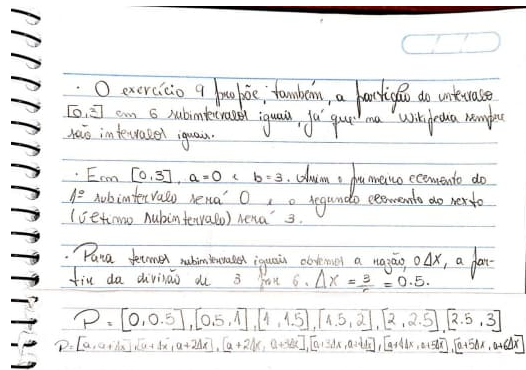 · O exercício 9 propõe, também, a partição do intervalo
[0,3] em 6 subintervalos iguais, já que na Wikipedia sempre
são intervalos iguais.
· Em [0,3], a=0 e b=3. Assim o primeiro elemento do
1º subintervalo será 0 e o segundo elemento do sexto
(último subintervalo) será 3.
· Para termos subintervalos iguais obtemos a razão, o Δx, a par-
tir da divisão de 3 por 6. Δx = 3/6 = 0.5.
P = [0,0.5],[0.5,1],[1,1.5],[1.5,2],[2,2.5],[2.5,3]
P=[a,a+Δx],[a+Δx,a+2Δx],[a+2Δx,a+3Δx],[a+3Δx,a+4Δx],[a+4Δx,a+5Δx],[a+5Δx,a+6Δx]